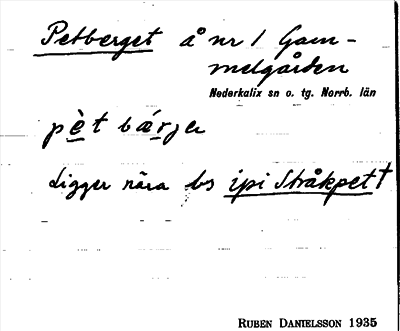 Petberget å nr 1 Gam-
melgården
Nederkalix sn o. tg. Norrb. län
pèt bárjer
Ligger nära bs ipi Stråkpett
RUBEN DANIELSSON 1935